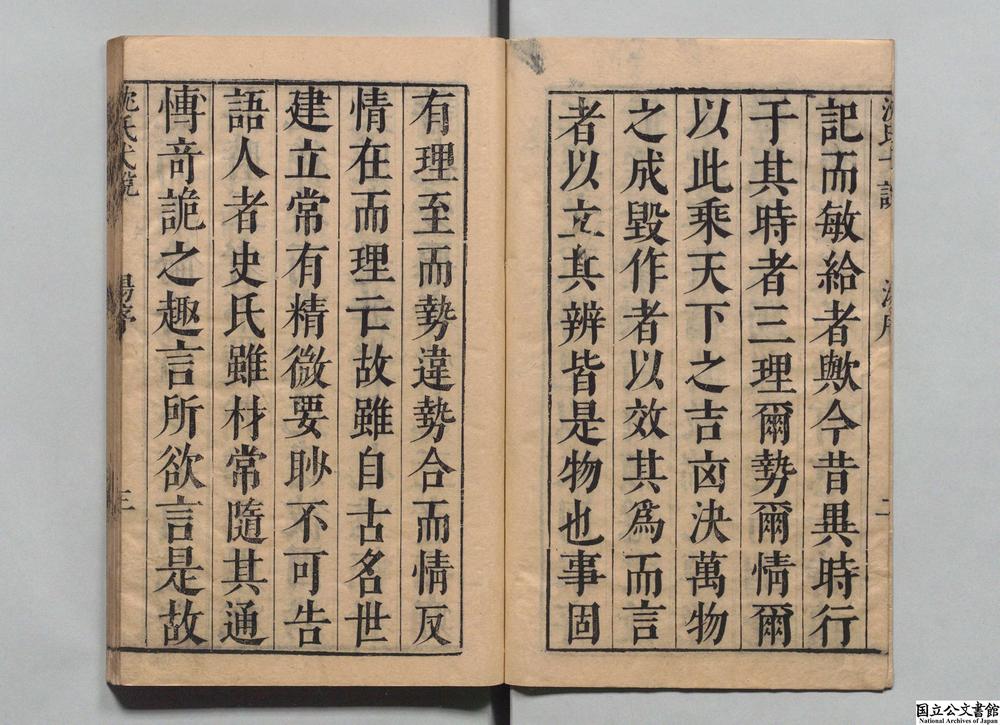 記而敏給者歟今昔異時行
于其時者三理爾勢爾情爾
以此乘天下之吉凶決萬物
之成毀作者以效其爲而言
者以立其辨皆是物也事固
有理至而勢違勢合而情反
情在而理亡故雖自古名世
建立常有精微要眇不可告
語人者史氏雖材常隨其通
博奇詭之趣言所欲言是故
沈氏弋說
湯序
三
国立公文書館
National Archives of Japan